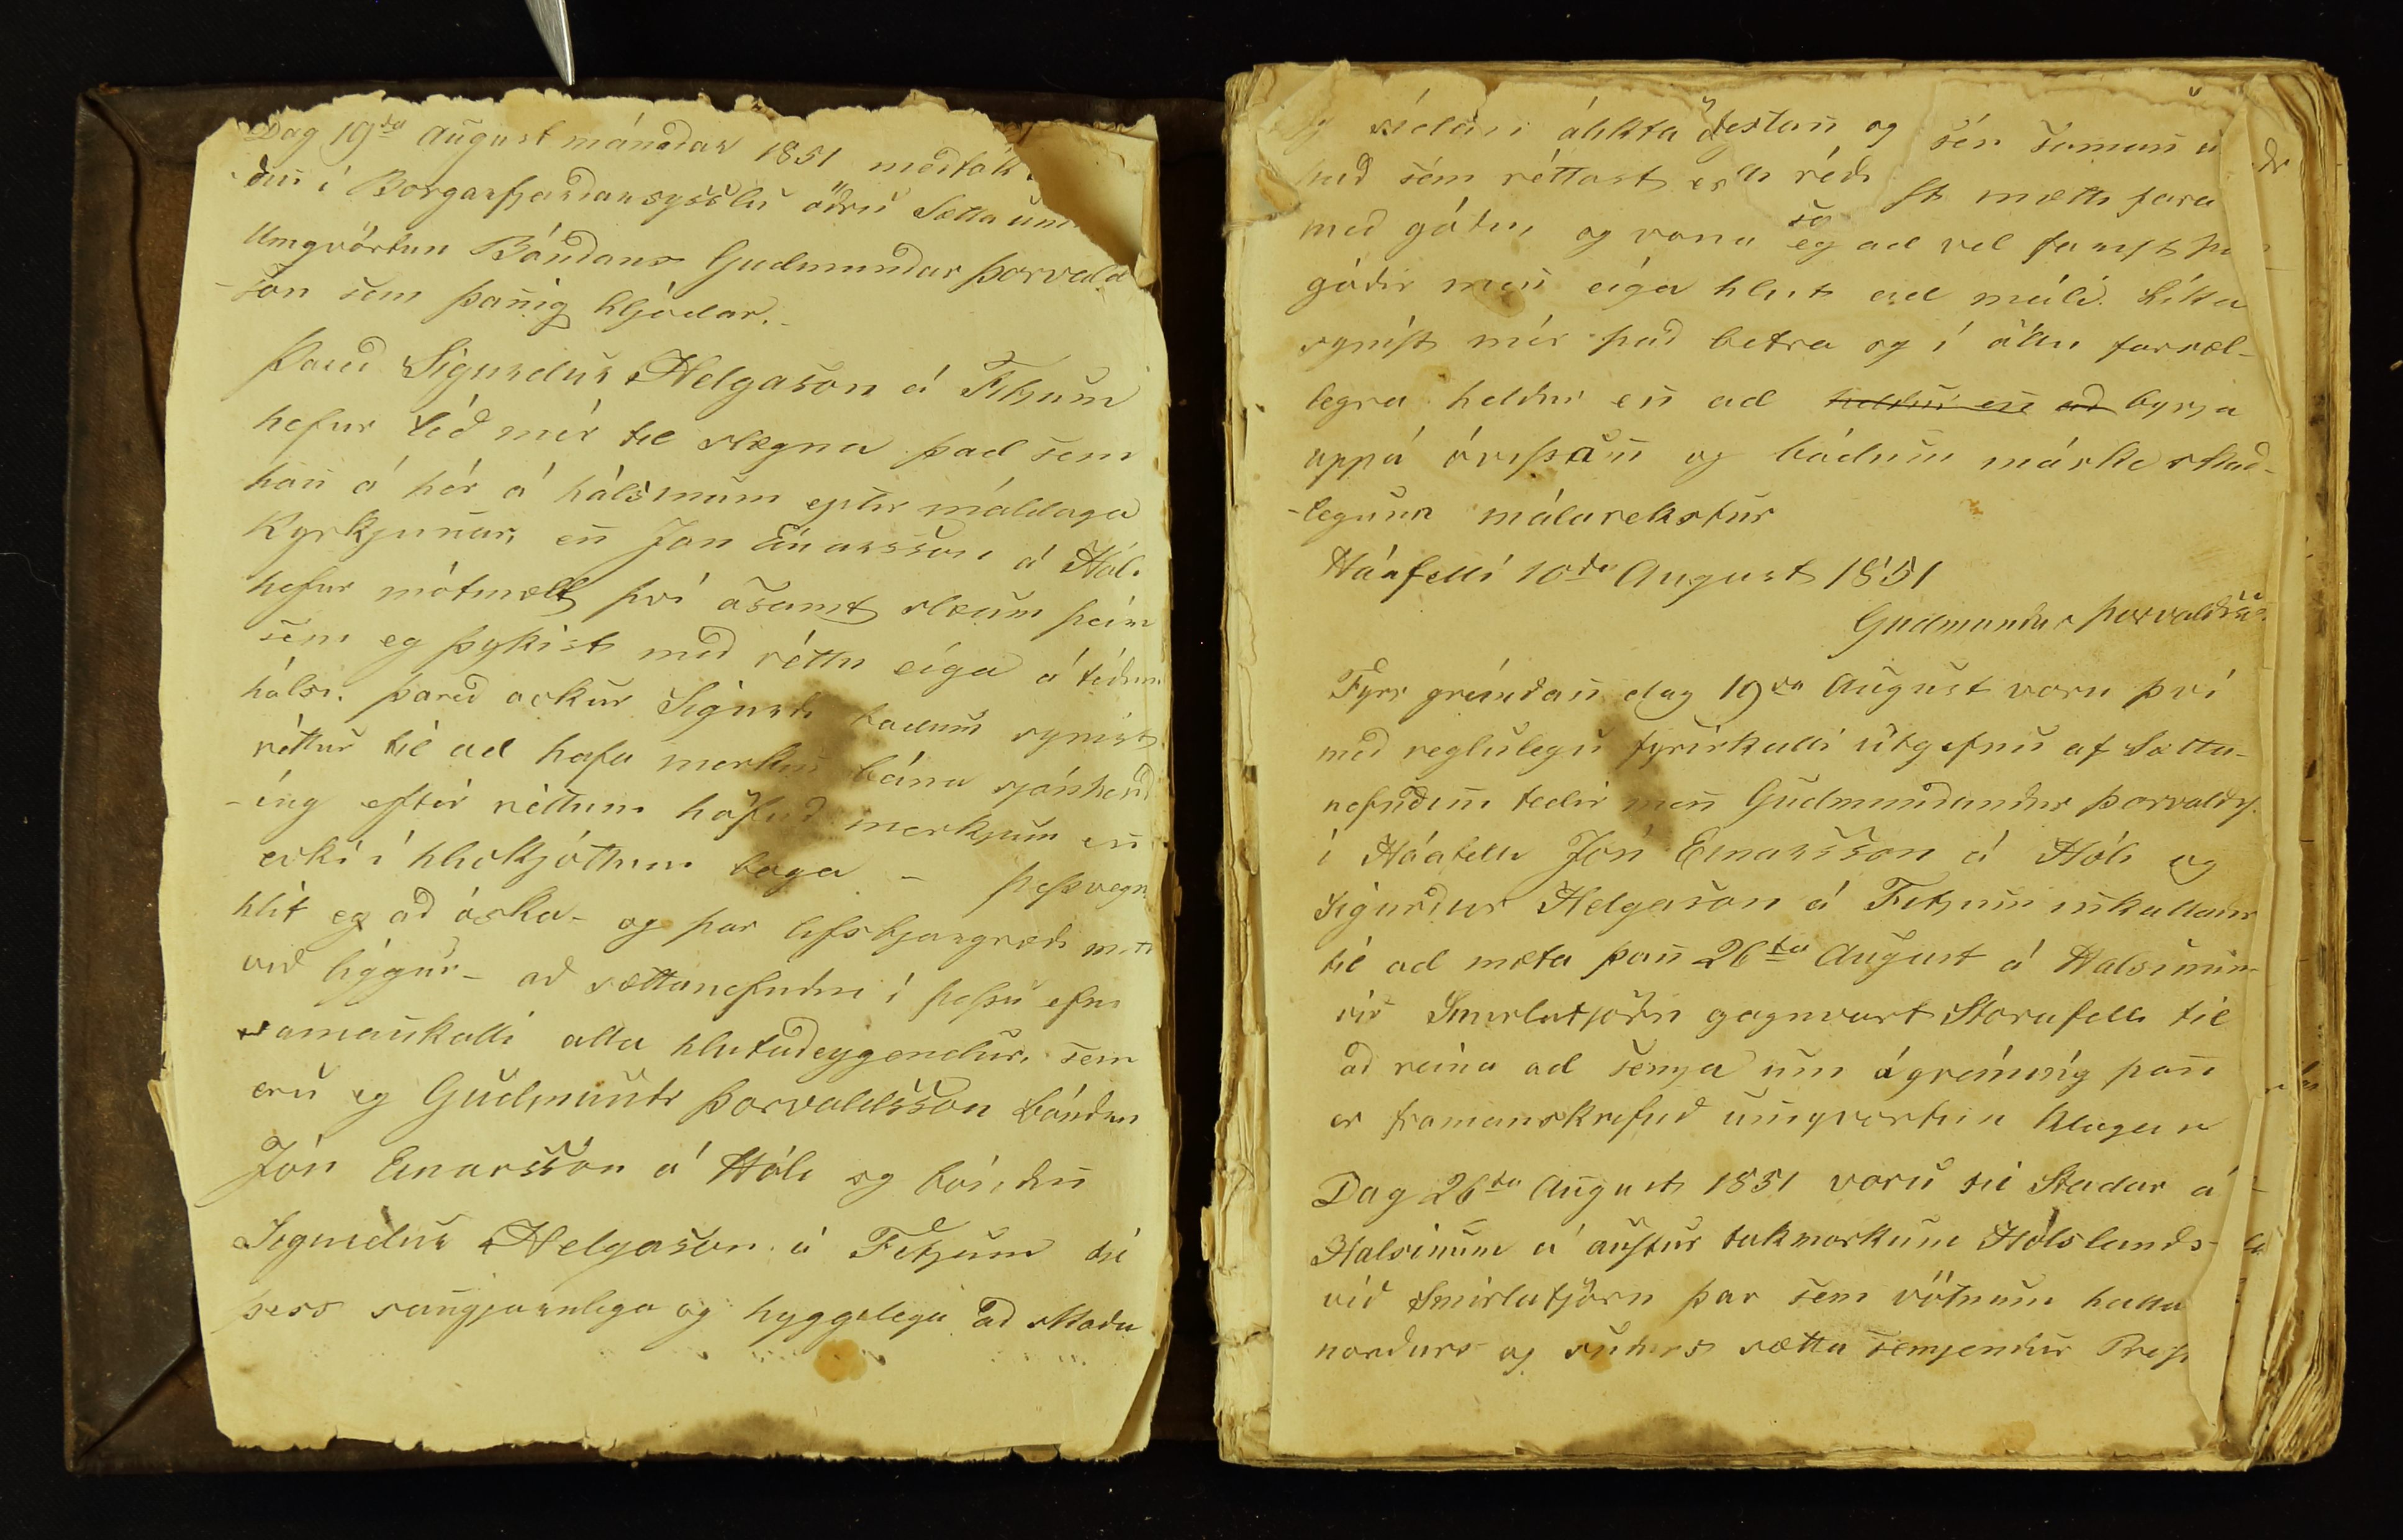 Dag 19da August mánaðar 1851 medtók
din í Borgarfjardarsysslu öðru Sætta um
Umqvörtun Bóndans Gudmundar Þorvald
-son sem þannig hljódar.-
Þared Sigurdur Helgason á Fitjum
hefur léð mér til slægna þad sem
hann á hér á hálsinum eptir máldaga
Kyrkjunnar, enn Jón Einarsson á Hóli
hefur mótmælt því ásamt slæum þeim
sem eg þykist med réttu eiga á tédum
hálsi. þared ockur Sigurdi bádum synist
réttur til ad hafa merkin beina sjónhend
-ing eftir réttum höfuð merkjum enn
ecki í hlickjóttum boga - þessvegna
hlít eg að óska - og þar lifsbjargræði mitt
við liggur - að sættanefndin í þessu efni
samankalli alla hlutadeygendur, sem
eru eg Gudmundr Þorvaldsson bóndin
Jón Einarsson á Hóli og bóndinn
Sigurdur Helgason á Fitjum til
þess sanngjarnlega og hyggelega að skoða
og sídan álikta öestann og sén saman
hvað sém réttast er réði st mætti fara
med góðu, og vona so eg ad vel farist þa
góðir menn eiga hlut ad máli. Líka
synist mér það betra og í öllu farsæl-
legra heldur enn ad heldur enn að byrja
uppá óvissann og báðum máske skað-
-legann málarekstur
Háafelli 10da August 1851
Gudmundur Þorvaldsson
Fyrr greindann dag 19da August voru því
med reglulegu fyrirkalli útgefnu af Sætta-
nefndinni tedir menn Gudmundur Þorvaldss.
í Háafelli Jón Einarsson á Hóli og
Sigurður Helgason á Fitjum innkallaðir
til ad mæta þann 26ta August á Halsinum
við Smirlutjörn gagnvart Storafelli til
að reina ad semja um ágreining þann
er framanskrifuð umqvörtun klagar
Dag 26ta August 1851 voru til Stadar á
Halsinum á austur takmörkum Hólslands-
við Smirlutjörn þar sem vötnum halla
norðurs og suðurs sætta semjendur Prest